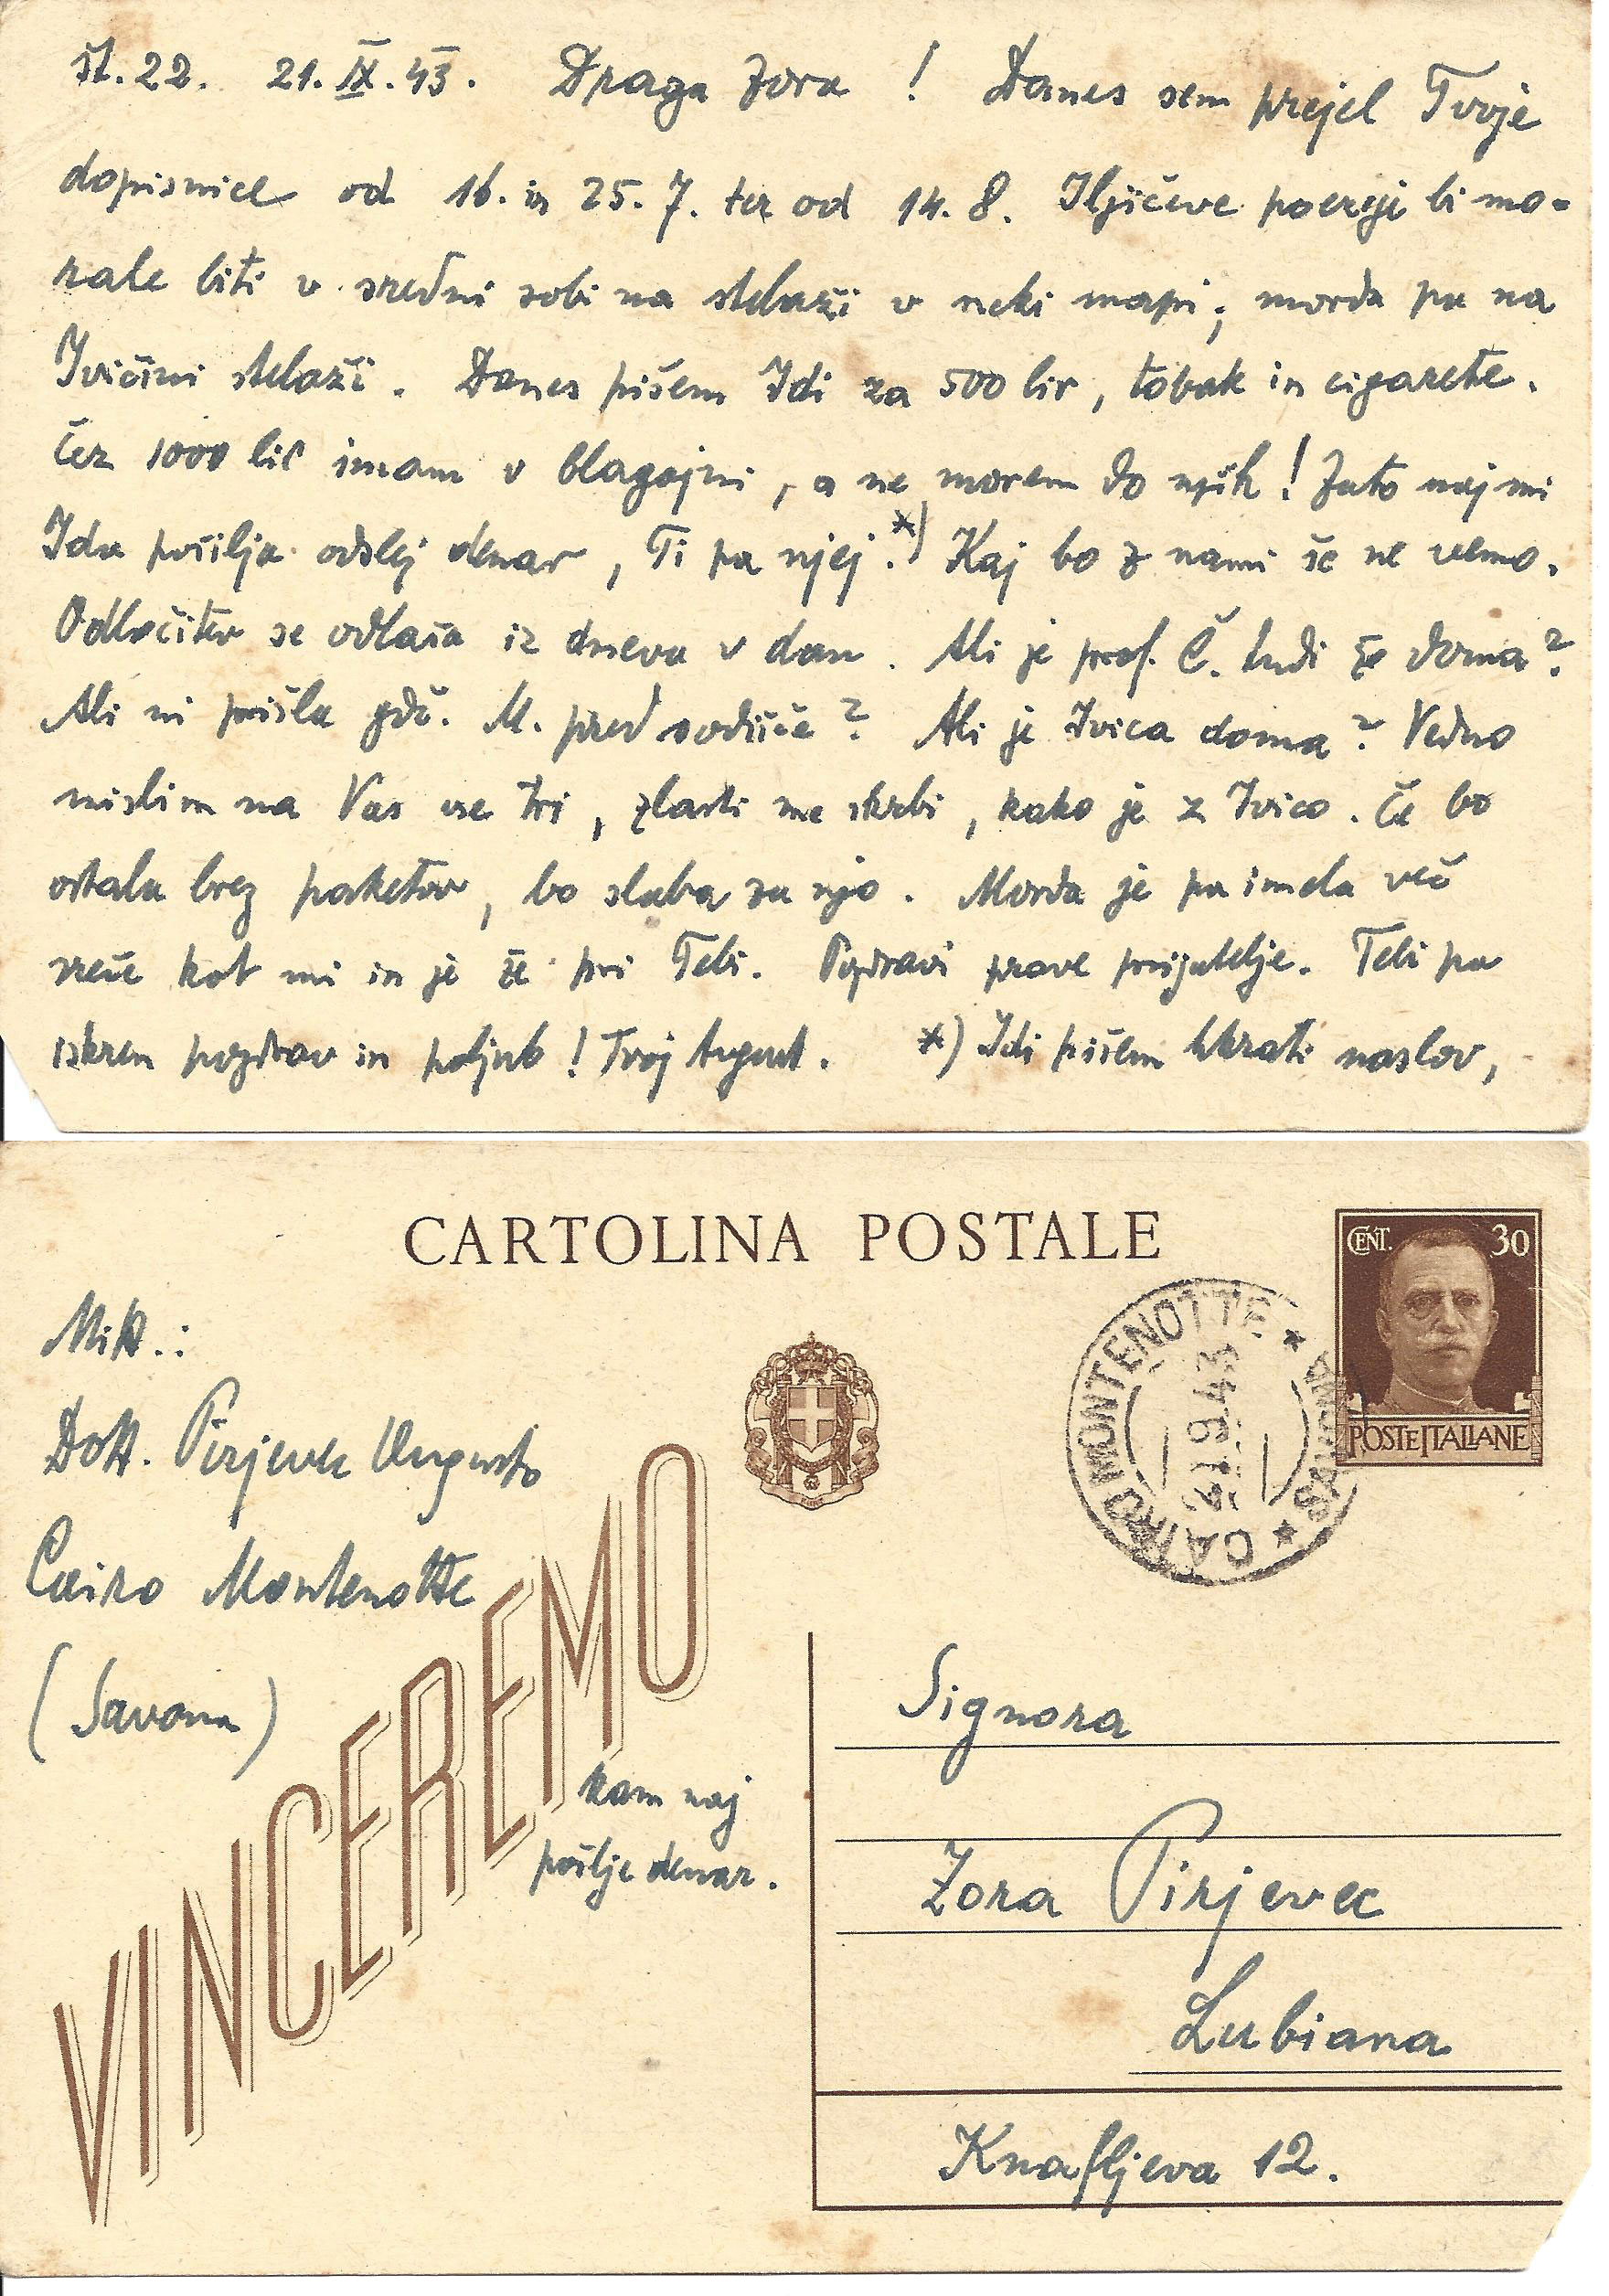 št. 22. 21. IX. 43. Draga Zora! Danes sem prejel Tvoje
dopisnice od 16. in 25. 7. ter od 14. 8. Iljičeve poezije bi mo-
rale biti v srednji sobi na stelaži v neki mapi; morda pa na
Ivičini stelaži. Danes pišem Idi za 500 lir, tobak in cigarete.
Čez 1000 lir imam v blagajni, a ne morem do njih! Zato naj mi
Ida pošilja odslej denar, Ti pa njej.*) Kaj bo z nami še ne vemo.
Odločitev se odlaša iz dneva v dan. Ali je prof. Č. tudi že doma?
Ali ni prišla gdč. M. pred sodišče? Ali je Ivica doma? Vedno
mislim na Vas vse tri, zlasti me skrbi, kako je z Ivico. Če bo
ostala brez paketov, bo slaba za njo. Morda je pa imela več
sreče kot mi in je že pri Tebi. Pozdravi prave prijatelje. Tebi pa
iskren pozdrav in poljub! Tvoj Avgust. *) Idi pišem hkrati naslov,
CARTOLINA POSTALE
CENT. 30
POSTE ITALIANE
CAIRO MONTENOTTE * SAVONA *
21.9.43
Mitt.:
Dott. Pirjevec Augusto
Cairo Montenotte
(Savona)
VINCEREMO
kam naj
pošlje denar.
Signora
Zora Pirjevec
Lubiana
Knafljeva 12.